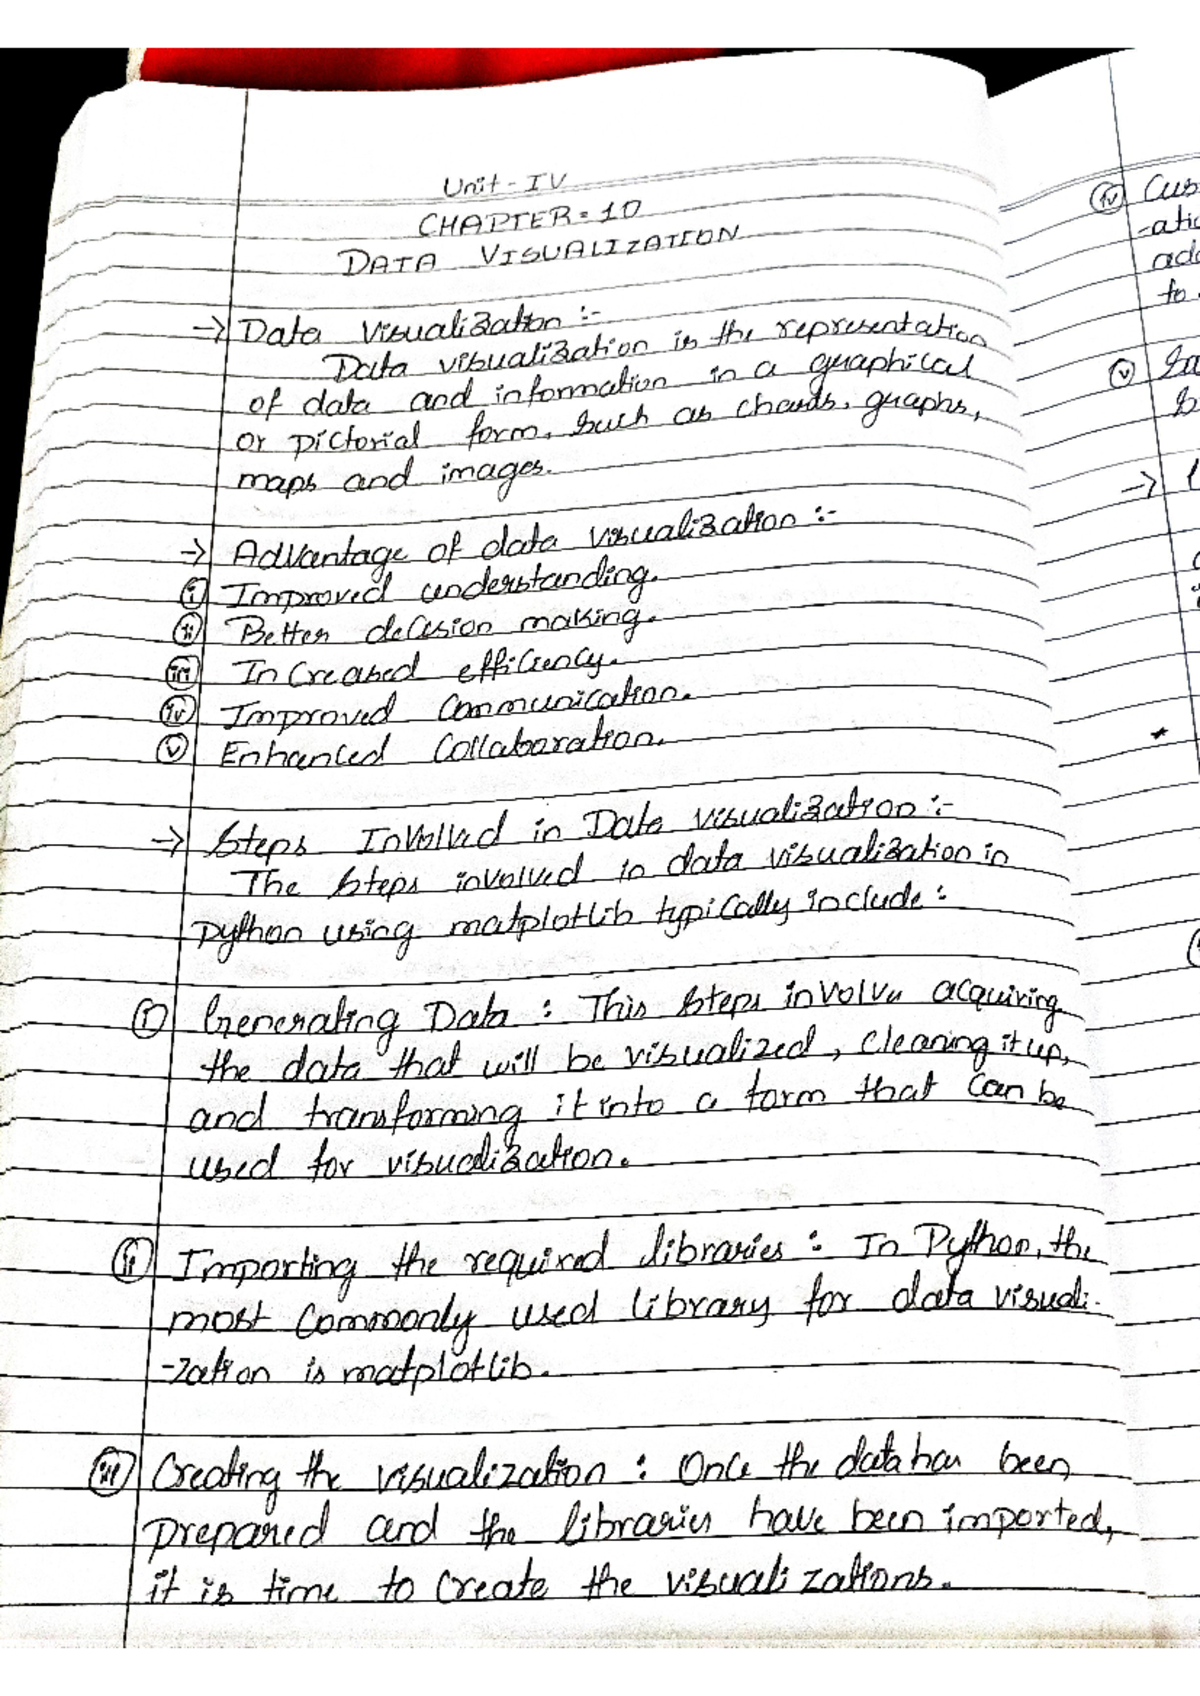 Unit - IV
CHAPTER = 10
DATA VISUALIZATION
→ Data Visualization :-
Data visualization is the representation
of data and information in a graphical
or pictorial form, such as charts, graphs,
maps and images.
→ Advantage of data visualization :-
(i) Improved understanding.
(ii) Better decision making.
(iii) Increased efficiency.
(iv) Improved Communication.
(v) Enhanced Collaboration.
→ Steps Involved in Data visualization :-
The steps involved in data visualization in
Python using matplotlib typically include :
(i) Generating Data : This steps involve acquiring
the data that will be visualized, cleaning it up,
and transforming it into a form that can be
used for visualization.
(ii) Importing the required libraries : In Python, the
most commonly used library for data visuali-
-zation is matplotlib.
(iii) Creating the visualization : Once the data has been
prepared and the libraries have been imported,
it is time to create the visualizations.
(iv) Cus
-atio
add
to
(v) Sa
→